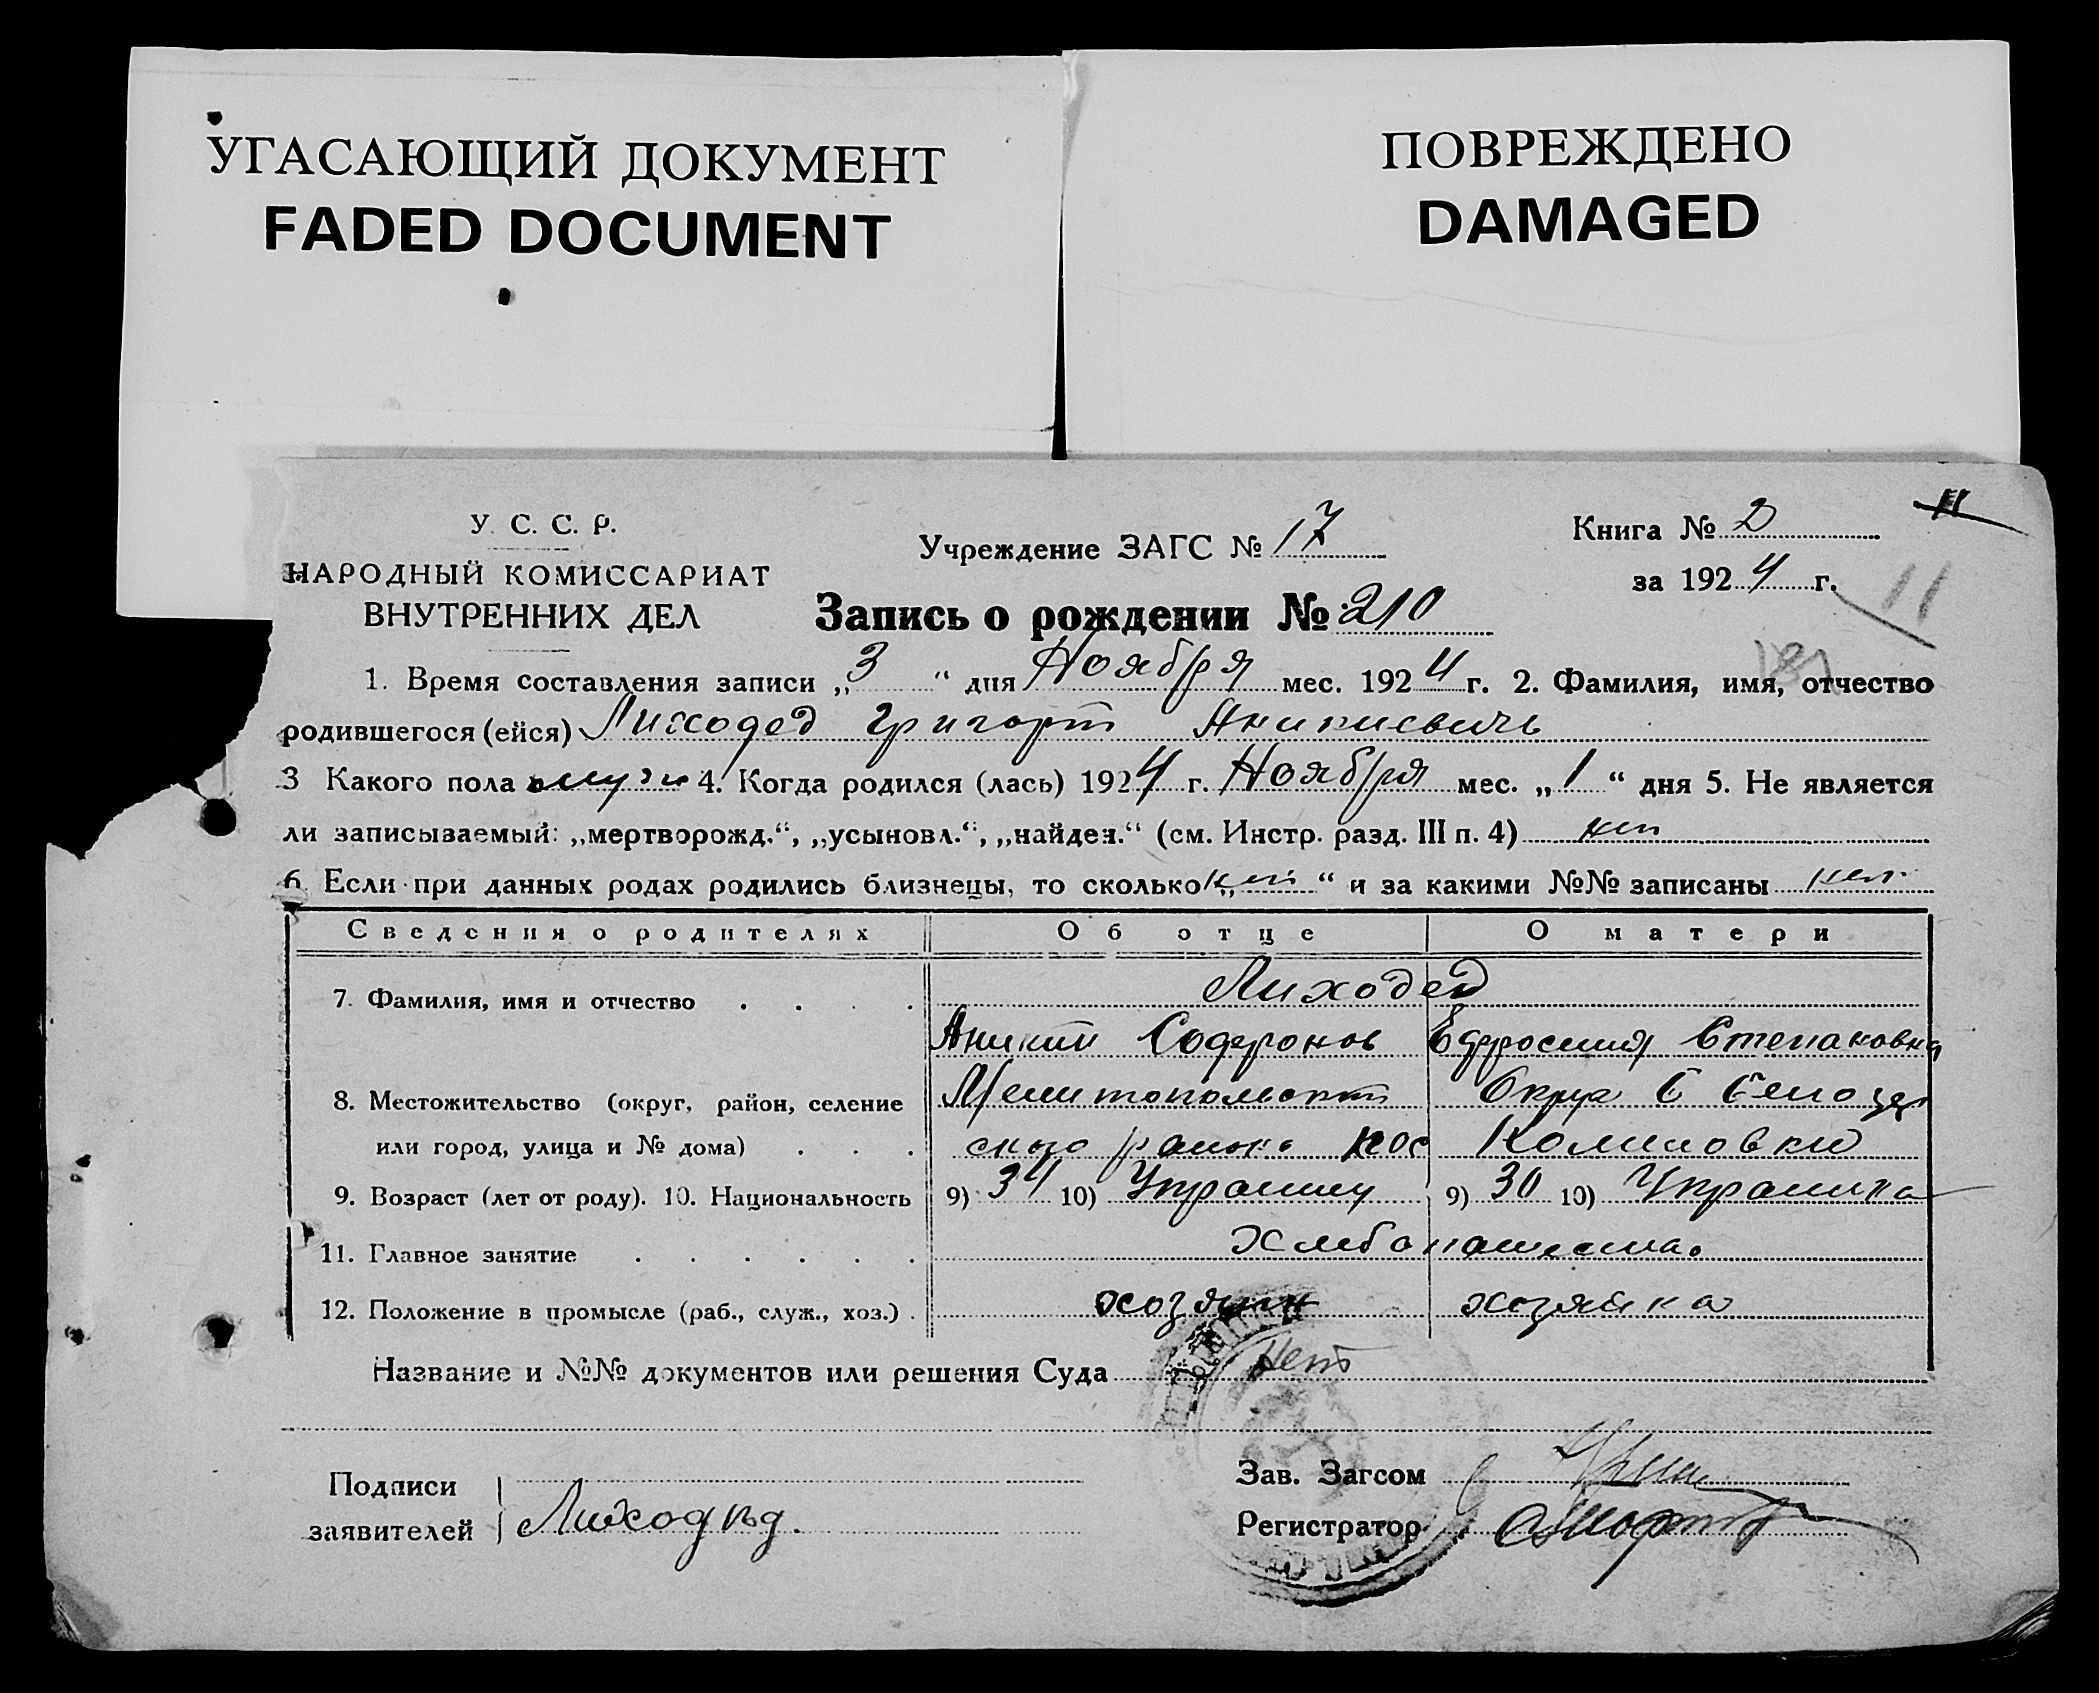 УГАСАЮЩИЙ ДОКУМЕНТ
FADED DOCUMENT
ПОВРЕЖДЕНО
DAMAGED
У. С. С. Р.
НАРОДНЫЙ КОМИССАРИАТ
ВНУТРЕННИХ ДЕЛ
Учреждение ЗАГС № 17
Книга № 2
за 1924 г.
11
11
Запись о рождении № 210
1. Время составления записи „3“ дня Ноября мес. 1924 г. 2. Фамилия, имя, отчество
родившегося (ейся) Лиходед Григорий Аникиевичь
3 Какого пола муж 4. Когда родился (лась) 1924 г. Ноября мес. „1“ дня 5. Не является
ли записываемый: „мертворожд.“, „усыновл.“, „найден.“ (см. Инстр. разд. III п. 4) нет
6. Если при данных родах родились близнецы, то сколько „нет“ и за какими №№ записаны нет
Сведения о родителях Об отце О матери
7. Фамилия, имя и отчество Лиходед
Аникий Софронов Ефросиния Степановна
8. Местожительство (округ, район, селение Мелитопольский Округ
или город, улица и № дома) ского района пос
9. Возраст (лет от роду). 10. Национальность 9) 34 10) Украинец 9) 30 10) Украинка
11. Главное занятие Хлебопашества
12. Положение в промысле (раб., служ., хоз.) хозяин хозяйка
Название и №№ документов или решения Суда Нет
Подписи
заявителей Лиходед.
Зав. Загсом
Регистратор